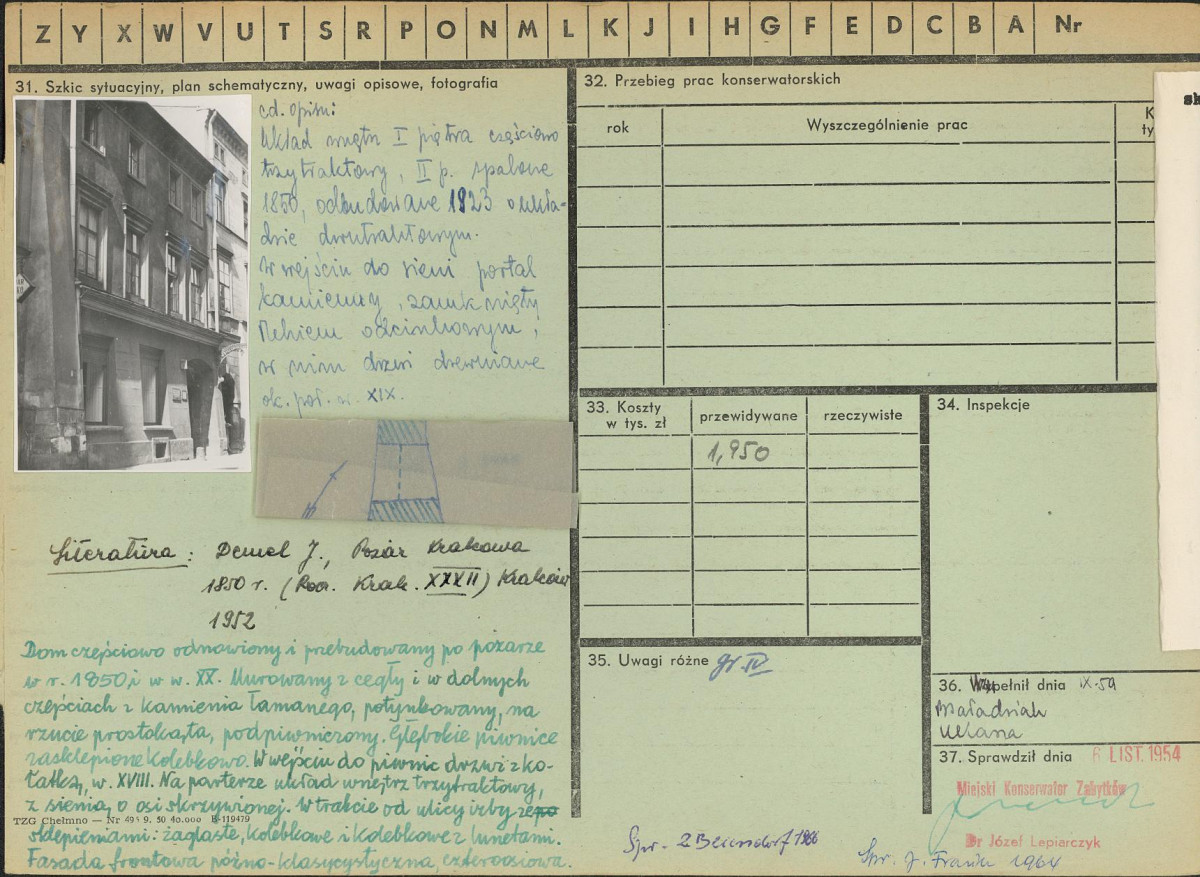 Z Y X W V U T S R P O N M L K J I H G F E D C B A Nr
31. Szkic sytuacyjny, plan schematyczny, uwagi opisowe, fotografia
cd. opisu:
Układ wnętrz I piętra częściowo
trzytraktowy, II p. spalone
1850, odbudowane 1823 o ukła-
dzie dwutraktowym.
W wejściu do sieni portal
kamienny, zamknięty
łękiem odcinkowym,
w nim drzwi drewniane
ok. poł. w. XIX.
Literatura: Demel J., Pożar Krakowa
1850 r. (Rocz. Krak. XXXII) Kraków
1952
Dom częściowo odnowiony i przebudowany po pożarze
w r. 1850, i w w. XX. Murowany z cegły i w dolnych
częściach z kamienia łamanego, potynkowany, na
rzucie prostokąta, podpiwniczony. Głębokie piwnice
zasklepione kolebkowo. W wejściu do piwnic drzwi z ko-
łatką, w. XVIII. Na parterze układ wnętrz trzytraktowy,
z sienią o osi skrzywionej. W trakcie od ulicy izby ze
sklepieniami: żaglaste, kolebkowe i kolebkowe z lunetami.
Fasada frontowa późno-klasycystyczna, czteroosiowa.
TZG Chełmno — Nr 493 9. 50 40.000 B-119479
32. Przebieg prac konserwatorskich
rok
Wyszczególnienie prac
K
ty
33. Koszty
w tys. zł
przewidywane
rzeczywiste
1,950
34. Inspekcje
35. Uwagi różne gr. IV
36. Wypełnił dnia IX.59
37. Sprawdził dnia 6 LIST. 1954
Miejski Konserwator Zabytków
Dr Józef Lepiarczyk
Spr. Z Beiersdorf 1966
Spr. J. Frazik 1964